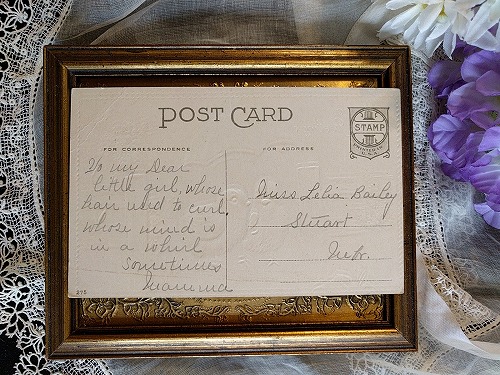 POST CARD
FOR CORRESPONDENCE
FOR ADDRESS
STAMP
To my Dear
little girl, whose
hair used to curl,
whose mind is
in a whirl
sometimes
Mamma
Miss Lelia Bailey
Stuart
Nebr.
275